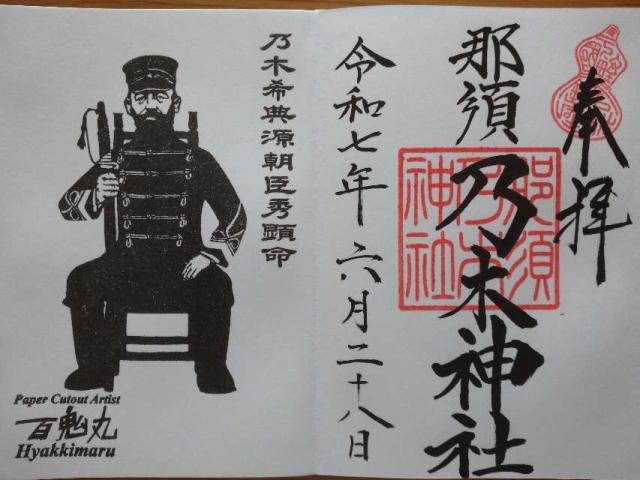 奉拝
那須乃木神社
那須乃木神社
令和七年 六月二十八日
乃木希典源朝臣秀顕命
Paper Cutout Artist
百鬼丸
Hyakkimaru